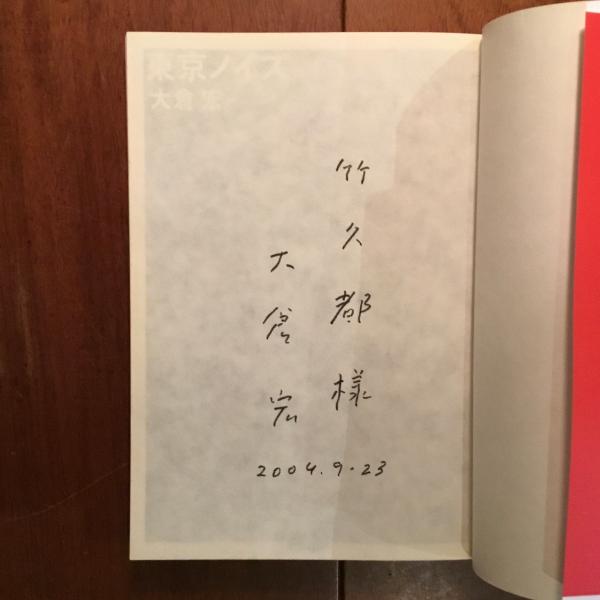 東京ノイズ
大倉 宏
竹久都様
大倉宏
2004.9.23